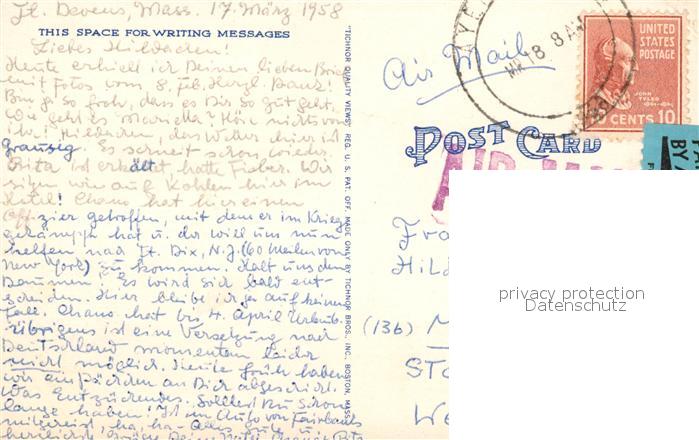 Ft. Devens, Mass. 17. März 1958
THIS SPACE FOR WRITING MESSAGES
Liebes Hildchen!
Heute erhielt ich Deinen lieben Brief
mit Fotos vom 8. Feb. Herzl. Dank!
Bin ja so froh, dass es Dir so gut geht.
Wie geht es Mariella? Hör nichts von
ihr! Hildchen, das Wetter hier ist
grausig. Es schneit schon wieder.
Rita ist erkältet, hatte Fieber. Wir
sitzen wie auf Kohlen hier im
Hotel! Chano hat hier einen
Offizier getroffen, mit dem er im Krieg
gekämpft hat u. der will uns nun
helfen nach Ft. Dix, N.J. (60 Meilen von
New York) zu kommen. Halt uns den
Daumen! Es wird sich bald ent-
scheiden. Hier bleibe ich ja auf keinen
Fall. Chano hat bis 4. April Urlaub.
Übrigens ist eine Versetzung nach
Deutschland momentan leider
nicht möglich. Heute früh haben
wir ein Päckchen an Dich abgeschickt.
Was Entzückendes. Solltest Du schon
lange haben! Ist im Auto von Fairbanks
mitgereist, ha, ha - Alles Gute u.
herzliche Grüsse Deine
"TICHNOR QUALITY VIEWS" REG. U. S. PAT. OFF. MADE ONLY BY TICHNOR BROS., INC., BOSTON, MASS.
Air Mail
POST CARD
MR 18 8 AM
UNITED
STATES
POSTAGE
JOHN
TYLER
1841-1845
CENTS 10
Hild
(13b)
privacy protection
Datenschutz